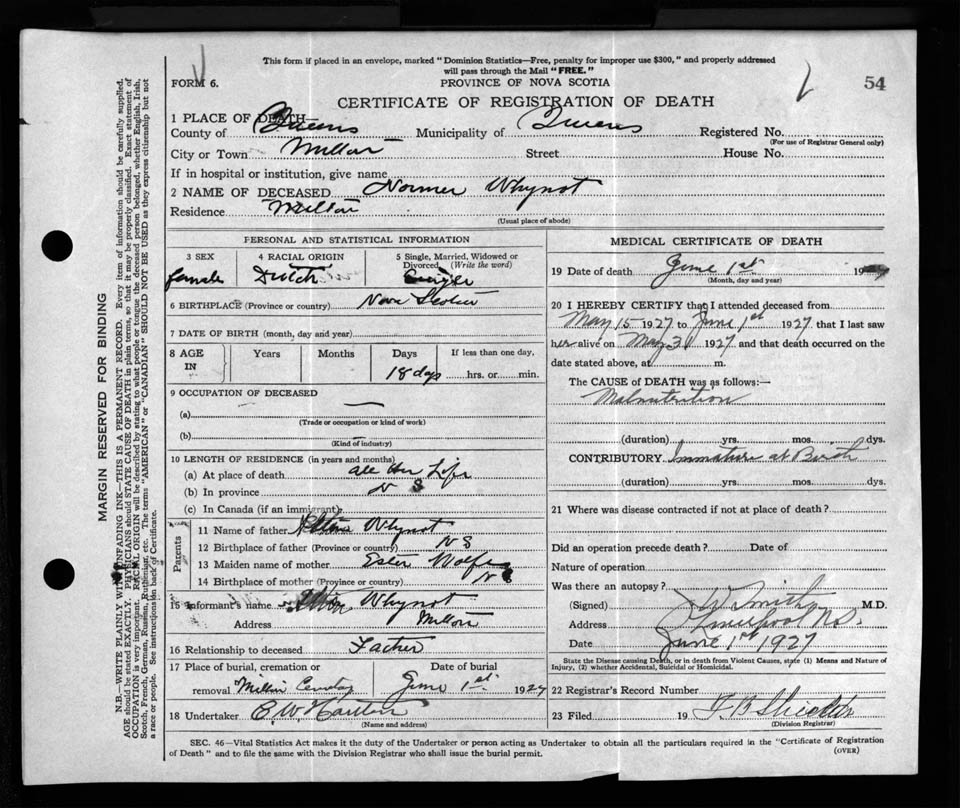 This form if placed in an envelope, marked "Dominion Statistics—Free, penalty for improper use $300," and properly addressed
will pass through the Mail "FREE."
FORM 6.
PROVINCE OF NOVA SCOTIA
54
CERTIFICATE OF REGISTRATION OF DEATH
1 PLACE OF DEATH—
County of Queens Municipality of Queens Registered No.
(For use of Registrar General only)
City or Town Milton Street House No.
If in hospital or institution, give name
2 NAME OF DECEASED Normer Whynot
Residence Milton
(Usual place of abode)
PERSONAL AND STATISTICAL INFORMATION
3 SEX 4 RACIAL ORIGIN 5 Single, Married, Widowed or
Divorced (Write the word)
female Dutch Single
6 BIRTHPLACE (Province or country) Nova Scotia
7 DATE OF BIRTH (month, day and year)
8 AGE IN Years Months Days If less than one day,
18 days hrs. or min.
9 OCCUPATION OF DECEASED
(a) —
(Trade or occupation or kind of work)
(b)
(Kind of industry)
10 LENGTH OF RESIDENCE (in years and months)
(a) At place of death all Her Life
(b) In province N S
(c) In Canada (if an immigrant)
Parents
11 Name of father Whynot
12 Birthplace of father (Province or country) N S
13 Maiden name of mother Ester Wolfe
14 Birthplace of mother (Province or country) N S
15 Informant's name Whynot
Address Milton
16 Relationship to deceased Father
17 Place of burial, cremation or Date of burial
removal Milton Cemetery June 1st 1927
18 Undertaker
(Name and address)
MEDICAL CERTIFICATE OF DEATH
19 Date of death June 1st 19
(Month, day and year)
20 I HEREBY CERTIFY that I attended deceased from
May 15 1927 to June 1st 1927 that I last saw
her alive on May 31 1927 and that death occurred on the
date stated above, at m.
The CAUSE of DEATH was as follows:—
Malnutrition
(duration) yrs. mos. dys.
CONTRIBUTORY Immature at Birth
(duration) yrs. mos. dys.
21 Where was disease contracted if not at place of death?
Did an operation precede death? Date of
Nature of operation
Was there an autopsy?
(Signed) Smith M.D.
Address Liverpool N.S.
Date June 1st 1927
State the Disease causing Death, or in death from Violent Causes, state (1) Means and Nature of
Injury, (2) whether Accidental, Suicidal or Homicidal.
22 Registrar's Record Number
23 Filed 19
(Division Registrar)
SEC. 46—Vital Statistics Act makes it the duty of the Undertaker or person acting as Undertaker to obtain all the particulars required in the "Certificate of Registration
of Death" and to file the same with the Division Registrar who shall issue the burial permit.
(OVER)
MARGIN RESERVED FOR BINDING
N.B.—WRITE PLAINLY WITH UNFADING INK—THIS IS A PERMANENT RECORD. Every item of information should be carefully supplied.
AGE should be stated EXACTLY. PHYSICIANS should STATE CAUSE OF DEATH in plain terms, so that it may be properly classified. Exact statement of
OCCUPATION is very important. RACIAL ORIGIN will be described by stating to what people or tongue the deceased person belonged, whether English, Irish,
Scotch, French, German, Russian, Ruthenian, etc. The terms "AMERICAN" or "CANADIAN" SHOULD NOT BE USED as they express citizenship but not
a race or people. See instructions on back of Certificate.